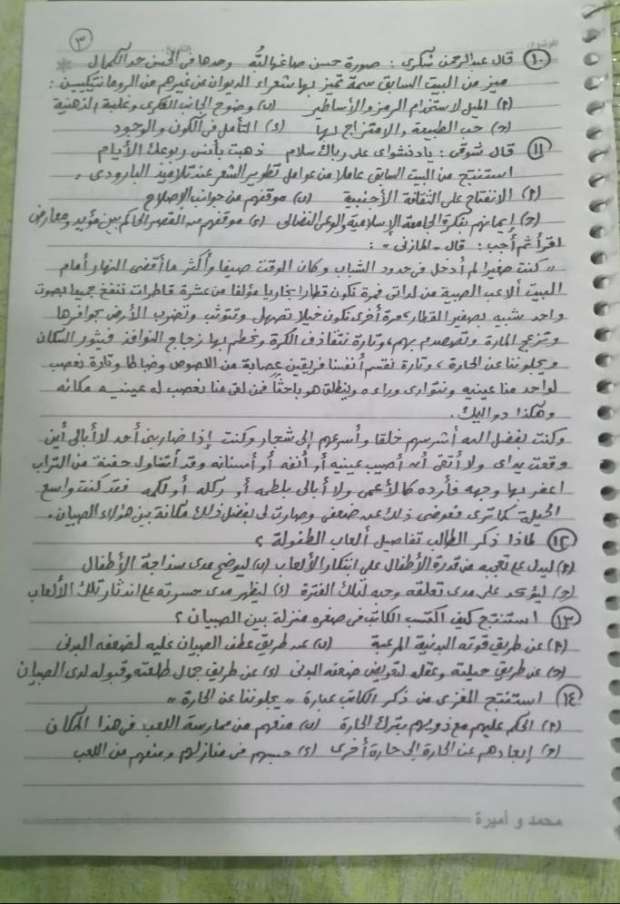 ٣
١٠ قال عبد الرحمن شكرى : صورة حسن صاغها لُبُّه وحدها فى الحسن حد الكمال
ميز من البيت السابق سمة تميز بها شعراء الديوان عن غيرهم من الرومانتيكيين :
(أ) الميل لاستخدام الرمز والأساطير (ب) وضوح الجانب الفكرى وغلبة الذهنية
(ج) حب الطبيعة والامتزاج بها (د) التأمل فى الكون والوجود
١١ قال شوقى : يا دنشواى على رباك سلام ذهبت بأنس ربوعك الأيام
استنتج من البيت السابق عاملا من عوامل تطوير الشعر عند تلاميذ البارودى .
(أ) الانفتاح على الثقافة الأجنبية (ب) موقفهم من جوانب الإصلاح
(ج) إيمانهم بفكرة الجامعة الإسلامية والوعى النضالى (د) موقفهم من القصر الحاكم بين مؤيد ومعارض
اقرأ ثم أجب : قال " المازنى " :
" كنت صغيرا لم أدخل فى حدود الشباب وكان الوقت صيفا وأكثر ما أقضى النهار أمام
البيت ألاعب الصبية من لداتى فمرة نكون قطارا بخاريا مؤلفا من عشرة قاطرات تنفخ جميعا بصوت
واحد شبيه بصفير القطار ومرة أخرى نكون خيلا تصهل وتتوثب وتضرب الأرض بحوافرها
وتزعج المارة وتصطدم بهم ، وتارة نتقاذف الكرة ونحطم بها زجاج النوافذ فيثور السكان
ويجلوننا عن الحارة ، وتارة نقسم أنفسنا فريقين عصابة من اللصوص وضباطا وتارة نعصب
لواحد منا عينيه ونتوارى وراءه وينطلق هو باحثا فمن لقى منا نعصب له عينيه مكانه
وهكذا دواليك .
وكنت بفضل الله أشرسهم خلقا وأسرعهم إلى شجار وكنت إذا ضاربنى أحد لا أبالى أين
وقعت يداى ولا أتقى أن أصيب عينيه أو أنفه أو أسنانه وقد أتناول حفنة من التراب
أعفر بها وجهه فأرده كالأعمى ولا أبالى بلطمه أو ركله أو لكمه فقد كنت واسع
الحيلة كما ترى فعوضنى ذلك عن ضعفى وصارت لى بفضل ذلك مكانة بين هؤلاء الصبيان .
١٢ لماذا ذكر الكاتب تفاصيل ألعاب الطفولة ؟
(أ) ليدل على تعجبه من قدرة الأطفال على ابتكار الألعاب (ب) ليوضح مدى سذاجة الأطفال
(ج) ليؤكد على مدى تعلقه وحبه لتلك الفترة (د) ليظهر مدى حسرته على اندثار تلك الألعاب
١٣ استنتج كيف اكتسب الكاتب فى صغره منزلة بين الصبيان ؟
(أ) عن طريق قوته البدنية المرعبة (ب) عن طريق عطف الصبيان عليه لضعفه البدنى
(ج) عن طريق حيلته وعقله لتعويض ضعفه البدنى (د) عن طريق جمال طلعته وقبوله لدى الصبيان
١٤ استنتج المغزى من ذكر الكاتب عبارة " يجلوننا عن الحارة "
(أ) الحكم عليهم مع ذويهم بترك الحارة (ب) منعهم من ممارسة اللعب فى هذا المكان
(ج) إبعادهم عن الحارة إلى حارة أخرى (د) حبسهم فى منازلهم ومنعهم من اللعب
محمد و أميرة